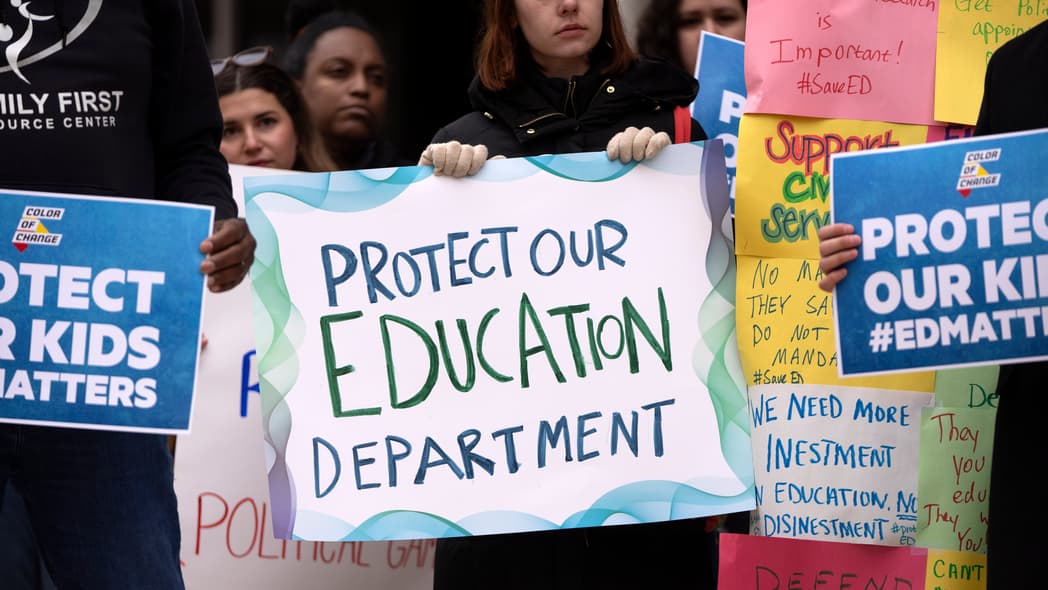 MILY FIRST
OURCE CENTER
COLOR
OF
CHANGE
OTECT
R KIDS
MATTERS
POLITICAL GAM
PROTECT OUR
EDUCATION
DEPARTMENT
is
Important!
#SaveED
Get Poli
appoin
Support
Civil
Serv
NO MA
THEY SA
DO NOT
MANDA
#SaveED
WE NEED MORE
INESTMENT
N EDUCATION. NO
DISINESTMENT
DEFEND
De
They
you
edu
They
You
CAN'T
COLOR
OF
CHANGE
PROTEC
OUR KI
#EDMATT